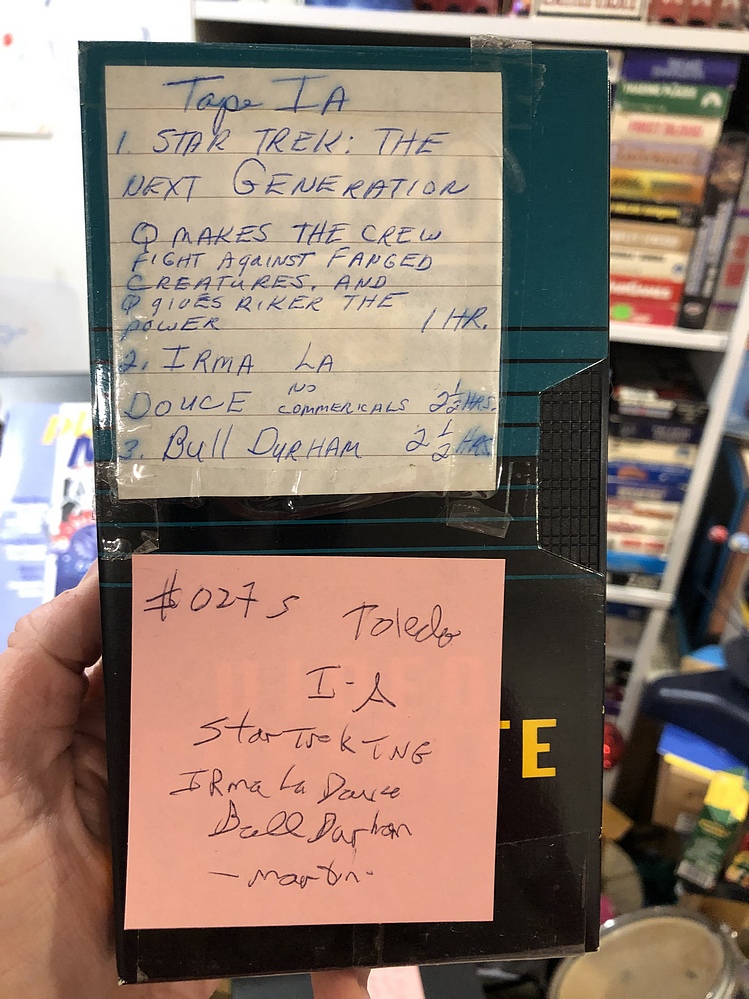 Tape IA
1. STAR TREK: THE
NEXT GENERATION
Q MAKES THE CREW
FIGHT AGAINST FANGED
CREATURES. AND
Q GIVES RIKER THE
POWER 1 HR.
2. IRMA LA
DOUCE NO COMMERICALS 2 1/2 HRS.
3. BULL DURHAM 2 1/2 HRS
#027s Toledo
I-A
Star Trek TNG
IRma La Douce
Bull Durham
-Martin-
TE